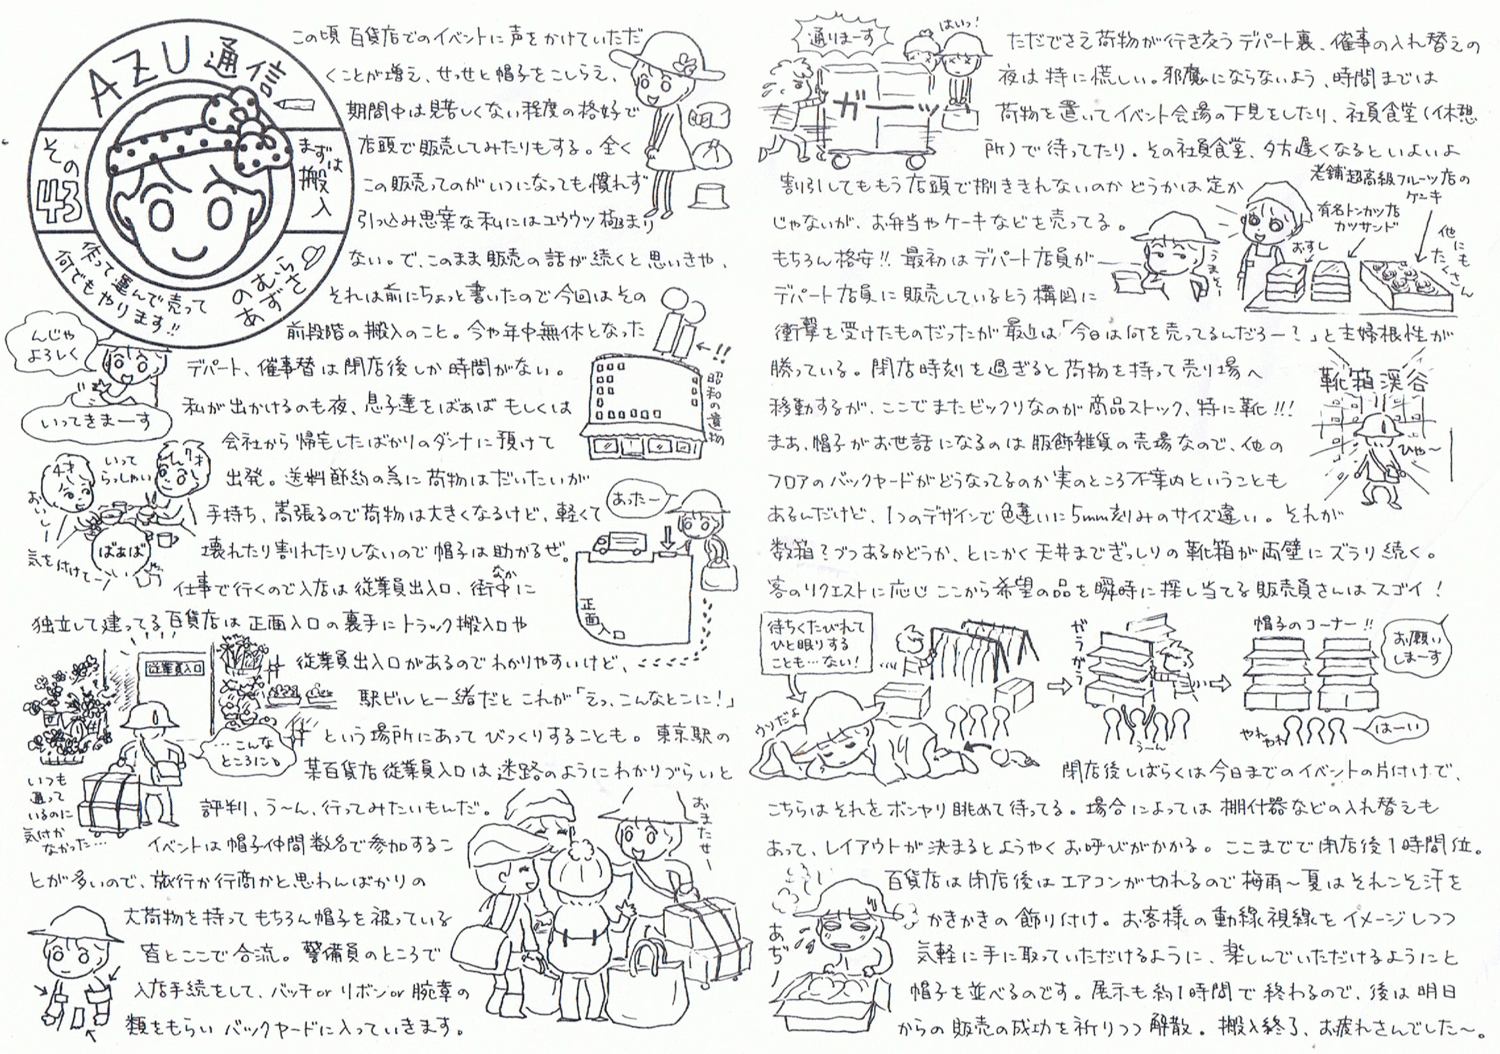 AZU通信
その43
まずは搬入
作って運んで売って
何でもやります!!
のむらあずさ
この頃百貨店でのイベントに声をかけていただ
くことが増え、せっせと帽子をこしらえ、
期間中は見苦しくない程度の格好で
店頭で販売してみたりもする。全く
この販売ってのがいつになっても慣れず
引っ込み思案な私にはユウウツ極まり
ない。で、このまま販売の話が続くと思いきや、
それは前にちょっと書いたので今回はその
前段階の搬入のこと。今や年中無休となった
デパート、催事替は閉店後しか時間がない。
私が出かけるのも夜、息子達をばぁばもしくは
会社から帰宅したばかりのダンナに預けて
出発。送料節約の為に荷物はだいたいが
手持ち、嵩張るので荷物は大きくなるけど、軽くて
壊れたり割れたりしないので帽子は助かるぜ。
仕事で行くので入店は従業員出入口、街中に
なか
独立して建ってる百貨店は正面入口の裏手にトラック搬入口や
従業員出入口があるのでわかりやすいけど、
駅ビルと一緒だとこれが「えっ、こんなとこに!」
という場所にあってびっくりすることも。東京駅の
某百貨店従業員入口は迷路のようにわかりづらいと
評判、う〜ん、行ってみたいもんだ。
イベントは帽子仲間数名で参加するこ
とが多いので、旅行か行商かと思わんばかりの
大荷物を持ってもちろん帽子を被っている
皆とここで合流。警備員のところで
入店手続をして、バッチorリボンor腕章の
類をもらいバックヤードに入っていきます。
んじゃ
よろしく
いってきまーす
4才
いって
らっしゃい
7才
おいしー
ばぁば
気を付けてー
!!
昭和の遺物
あったー
正面入口
従業員入口
…こんな
ところに。
いつも
通って
いるのに
気付か
なかった…
おまたせー
通りまーす
はいっ!
ガーッ
ただでさえ荷物が行き交うデパート裏、催事の入れ替えの
夜は特に慌しい。邪魔にならないよう、時間までは
荷物を置いてイベント会場の下見をしたり、社員食堂(休憩
所)で待ってたり。その社員食堂、夕方遅くなるといよいよ
割引してももう店頭で捌ききれないのかどうかは定か
じゃないが、お弁当やケーキなどを売ってる。
もちろん格安!!最初はデパート店員が
デパート店員に販売しているとう構図に
衝撃を受けたものだったが最近は「今日は何を売ってるんだろー?」と主婦根性が
勝っている。閉店時刻を過ぎると荷物を持って売り場へ
移動するが、ここでまたビックリなのが商品ストック、特に靴!!!
まあ、帽子がお世話になるのは服飾雑貨の売場なので、他の
フロアのバックヤードがどうなってるのか実のところ不案内ということも
あるんだけど、1つのデザインで色違いに5mm刻みのサイズ違い。それが
数箱?づつあるかどうか、とにかく天井までぎっしりの靴箱が両壁にズラリ続く。
客のリクエストに応じここから希望の品を瞬時に探し当てる販売員さんはスゴイ!
老舗超高級フルーツ店の
ケーキ
有名トンカツ店
カツサンド
おすし
他にも
たくさん
うまそー
靴箱渓谷
ひゃ〜
待ちくたびれて
ひと眠りする
ことも…ない!
うそだよ
がらがら
う〜ん
帽子のコーナー!!
お願い
しまーす
やれやれ
はーい
閉店後しばらくは今日までのイベントの片付けで、
こちらはそれをボンヤリ眺めて待ってる。場合によっては棚什器などの入れ替えも
あって、レイアウトが決まるとようやくお呼びがかかる。ここまでで閉店後1時間位。
百貨店は閉店後はエアコンが切れるので梅雨〜夏はそれこそ汗を
かきかきの飾り付け。お客様の動線視線をイメージしつつ
気軽に手に取っていただけるように、楽しんでいただけるようにと
帽子を並べるのです。展示も約1時間で終わるので、後は明日
からの販売の成功を祈りつつ解散。搬入終了、お疲れさんでした〜。
あぢ〜